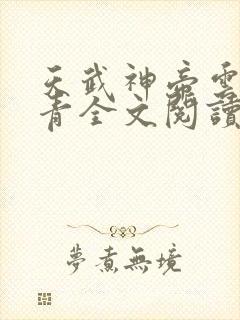 天武神帝雲
青全文閱讀
夢煮無境